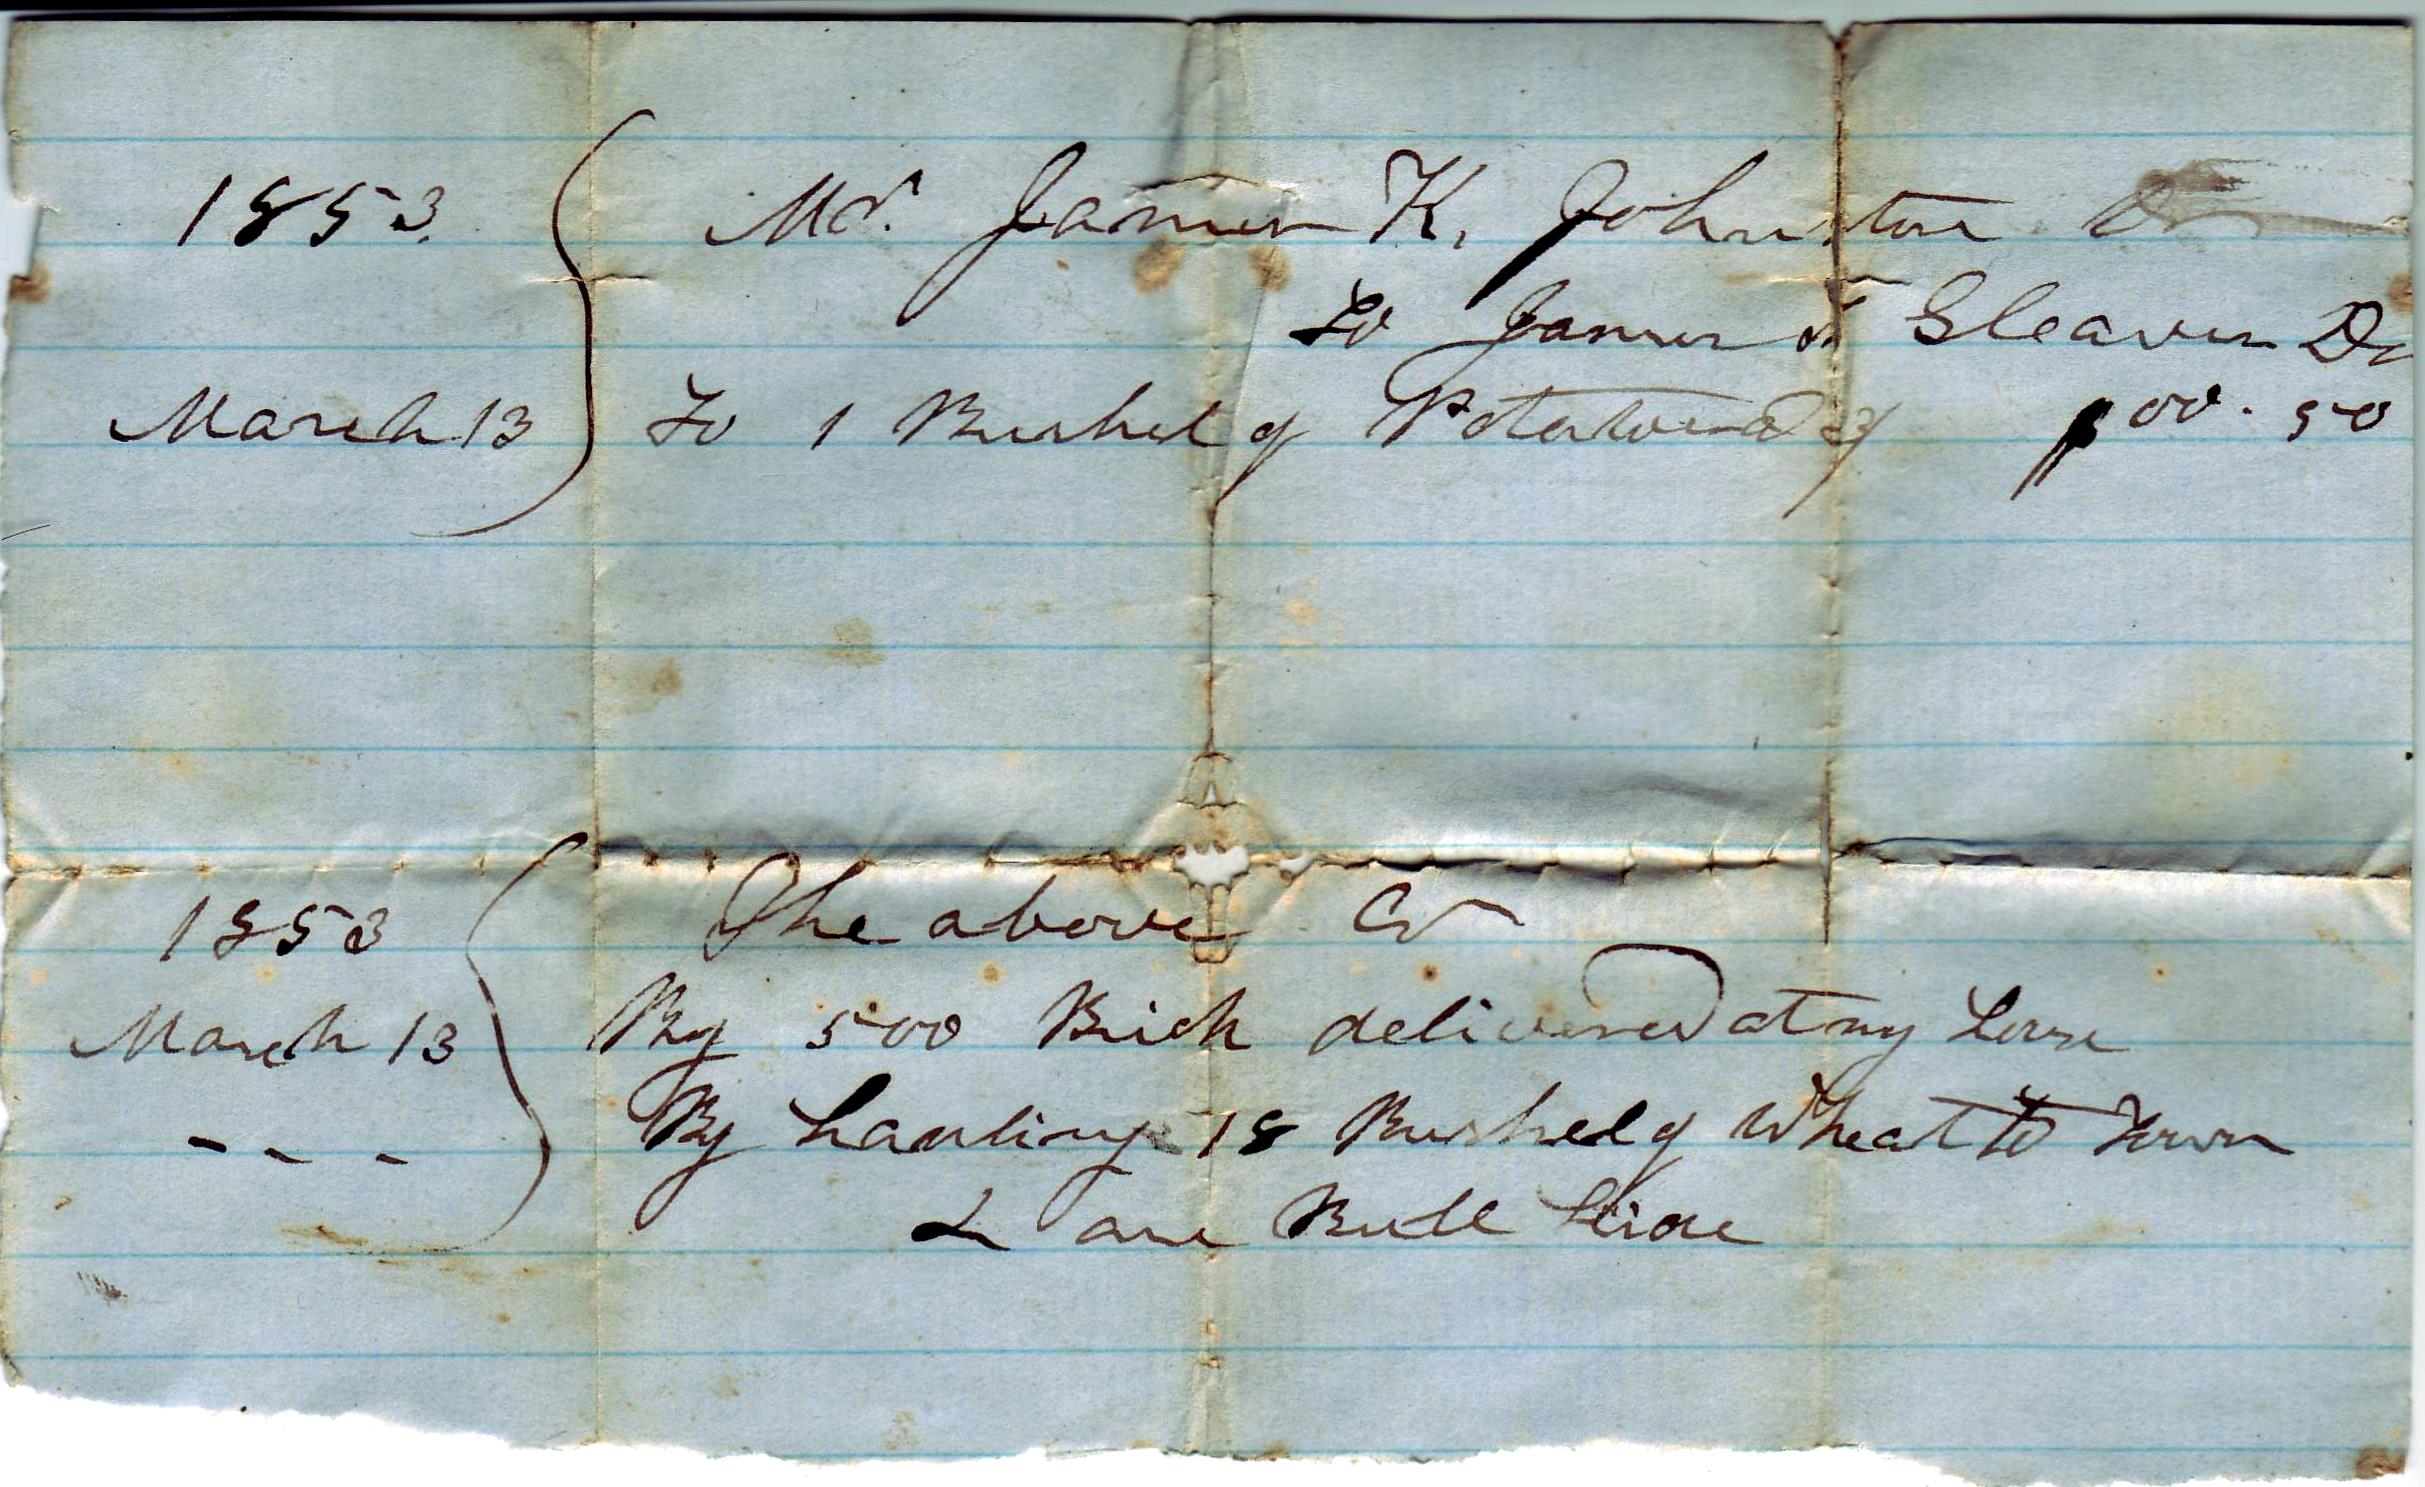 1853 Mr. James K. Johnston Dr
To James Gleaves Dr
March 13 To 1 Bushel of Potatoes $00.50
1853 The above Cr
March 13 By 500 Brick delivered at my house
- - - By hauling 18 Bushel of Wheat to Town
& one Bull hide